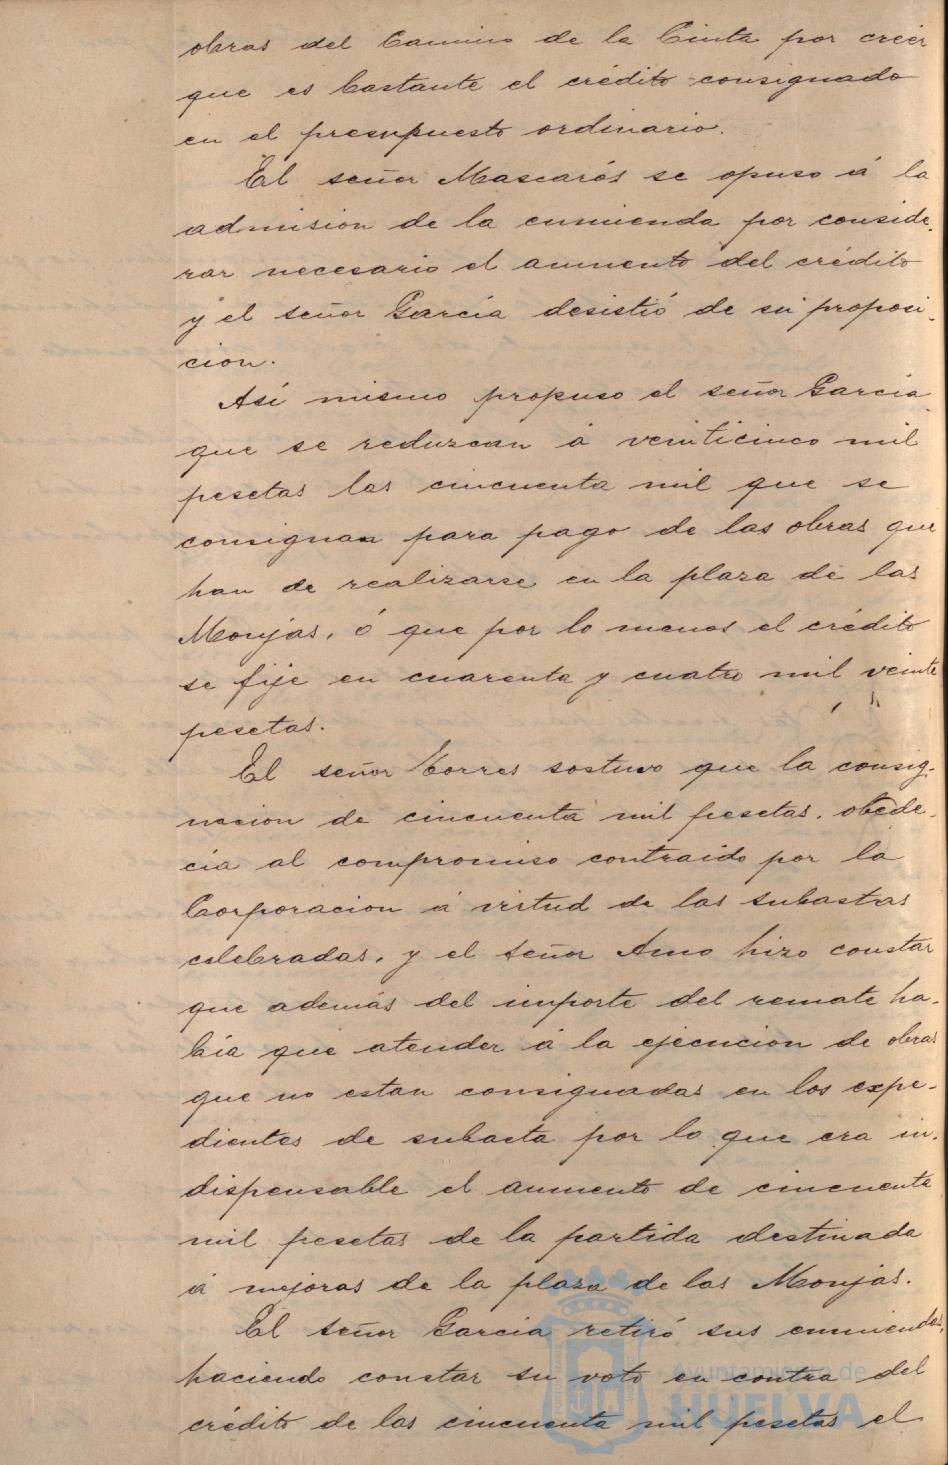 obras del Camino de la Cinta por creer
que es bastante el crédito consignado
en el presupuesto ordinario.
El señor Mascarós se opuso á la
admision de la enmienda por conside-
rar necesario el aumento del crédito
y el señor García desistió de su proposi-
cion.
Así mismo propuso el señor García
que se reduzcan á veinticinco mil
pesetas las cincuenta mil que se
consignan para pago de las obras que
han de realizarse en la plaza de las
Monjas, ó que por lo menos el crédito
se fije en cuarenta y cuatro mil veinte
pesetas.
El señor Torres sostuvo que la consig-
nacion de cincuenta mil pesetas, obede-
cía al compromiso contraido por la
Corporacion á virtud de las subastas
celebradas, y el señor Amo hizo constar
que además del importe del remate ha-
bía que atender á la ejecucion de obras
que no estan consignadas en los expe-
dientes de subasta por lo que era in-
dispensable el aumento de cincuenta
mil pesetas de la partida destinada
á mejoras de la plaza de las Monjas.
El señor Garcia retiró sus enmiendas,
haciendo constar su voto en contra del
crédito de las cincuenta mil pesetas el
Ayuntamiento de
HUELVA